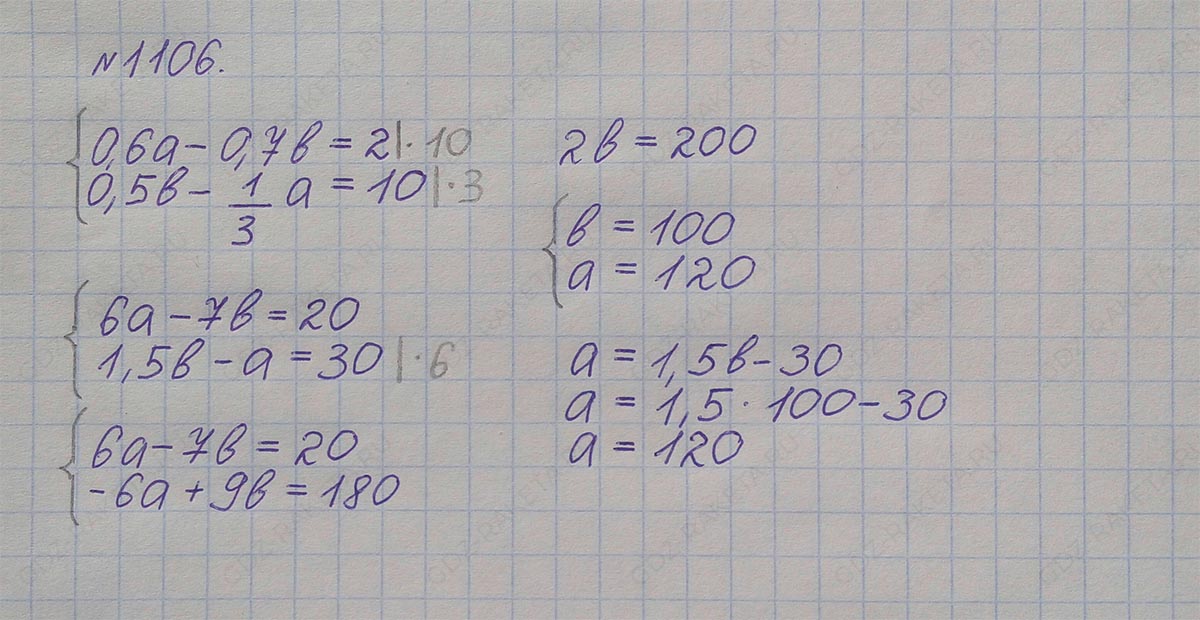 №1106.
0,6a - 0,7в = 2 | · 10
0,5в - 1/3 a = 10 | · 3
6a - 7в = 20
1,5в - a = 30 | · 6
6a - 7в = 20
-6a + 9в = 180
2в = 200
в = 100
a = 120
a = 1,5в - 30
a = 1,5 · 100 - 30
a = 120
GDZ-RAKETA.RU